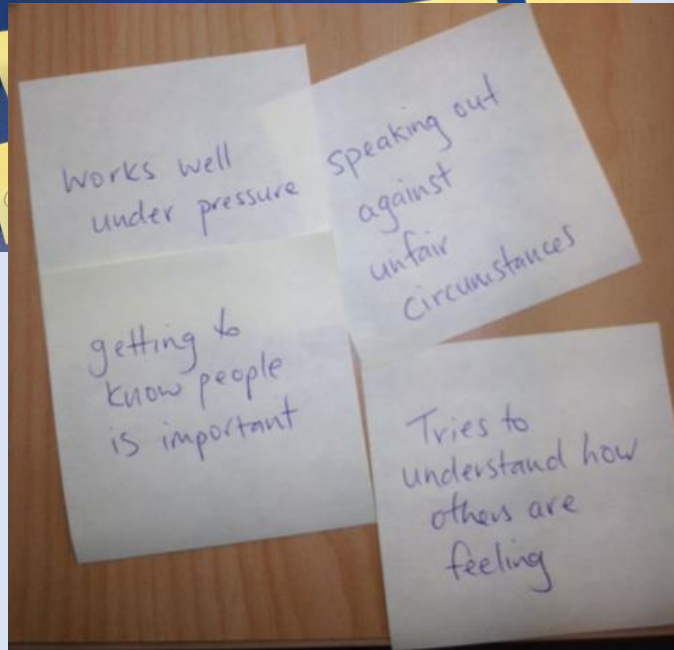 Works well
under pressure
speaking out
against
unfair
circumstances
getting to
know people
is important
Tries to
understand how
others are
feeling